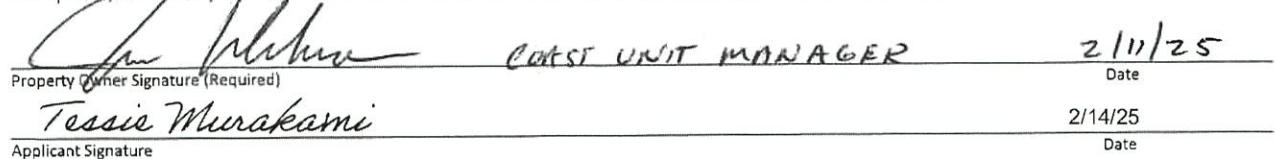 COAST UNIT MANAGER 2/11/25
Property Owner Signature (Required) Date
Tessie Murakami 2/14/25
Applicant Signature Date